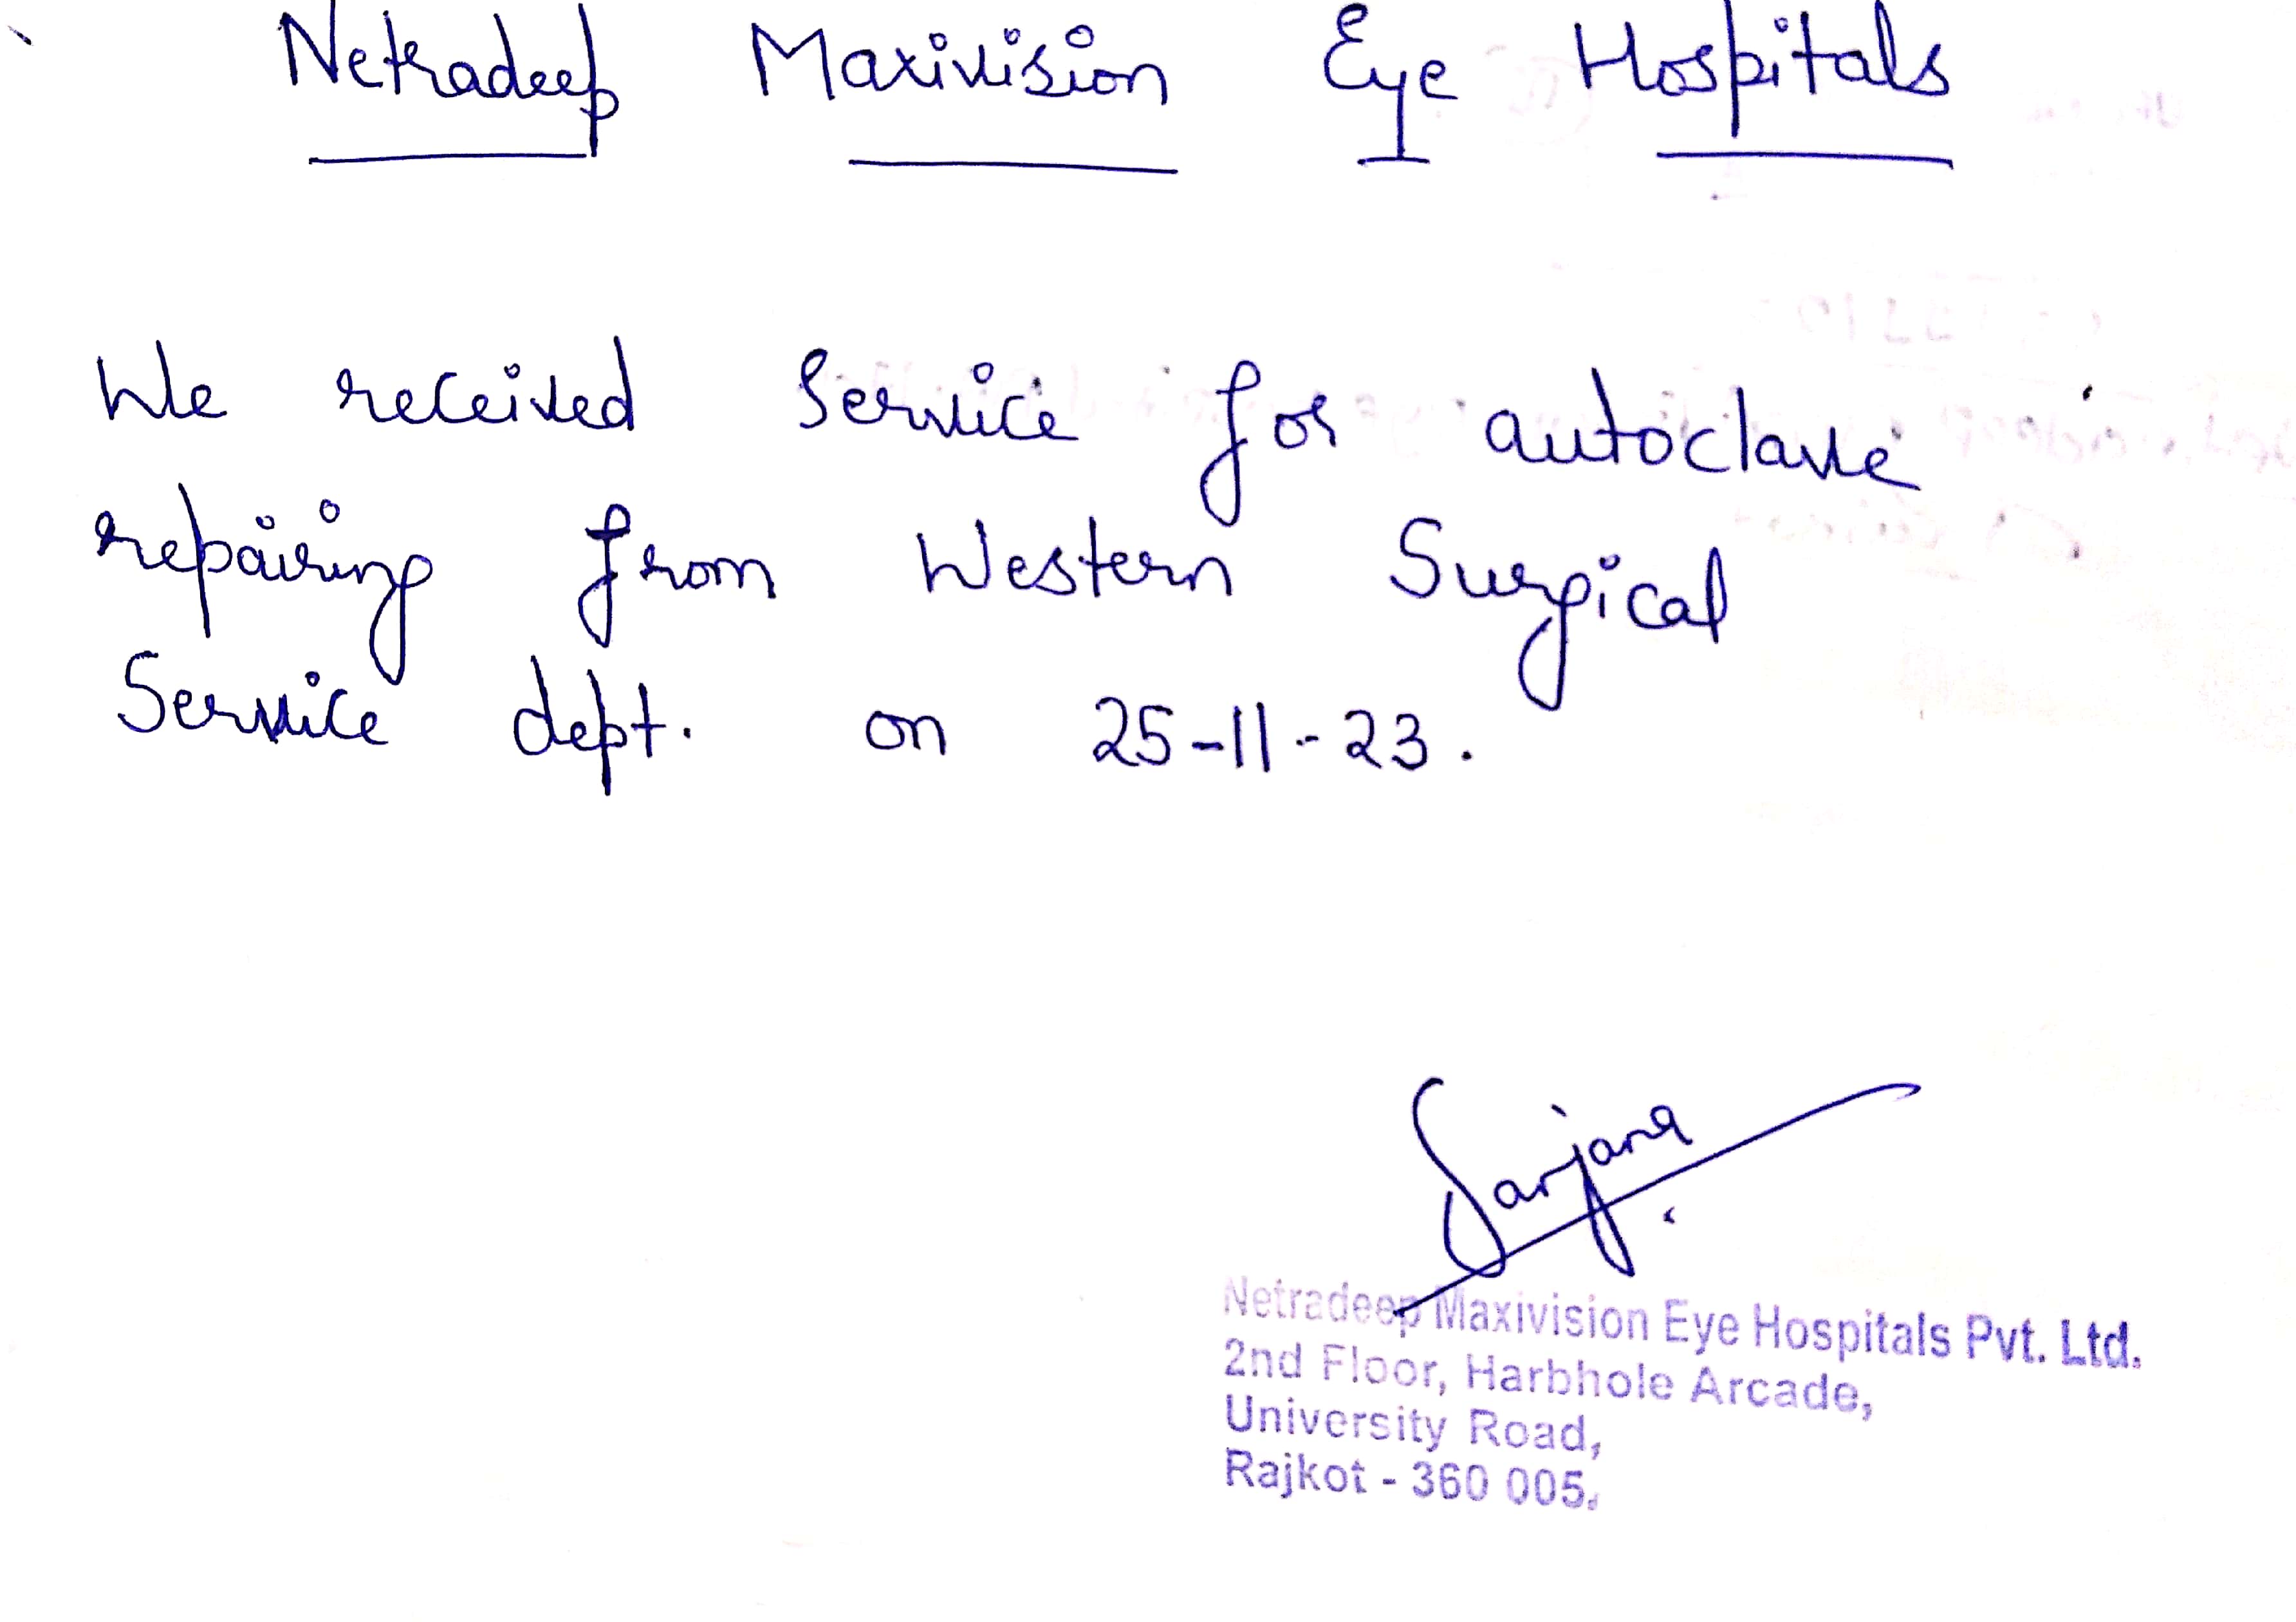 Netradeep Maxivision Eye Hospitals
We received service for autoclave
repairing from Western Surgical
Service dept. on 25-11-23.
Sanjana
Netradeep Maxivision Eye Hospitals Pvt. Ltd.
2nd Floor, Harbhole Arcade,
University Road,
Rajkot - 360 005.